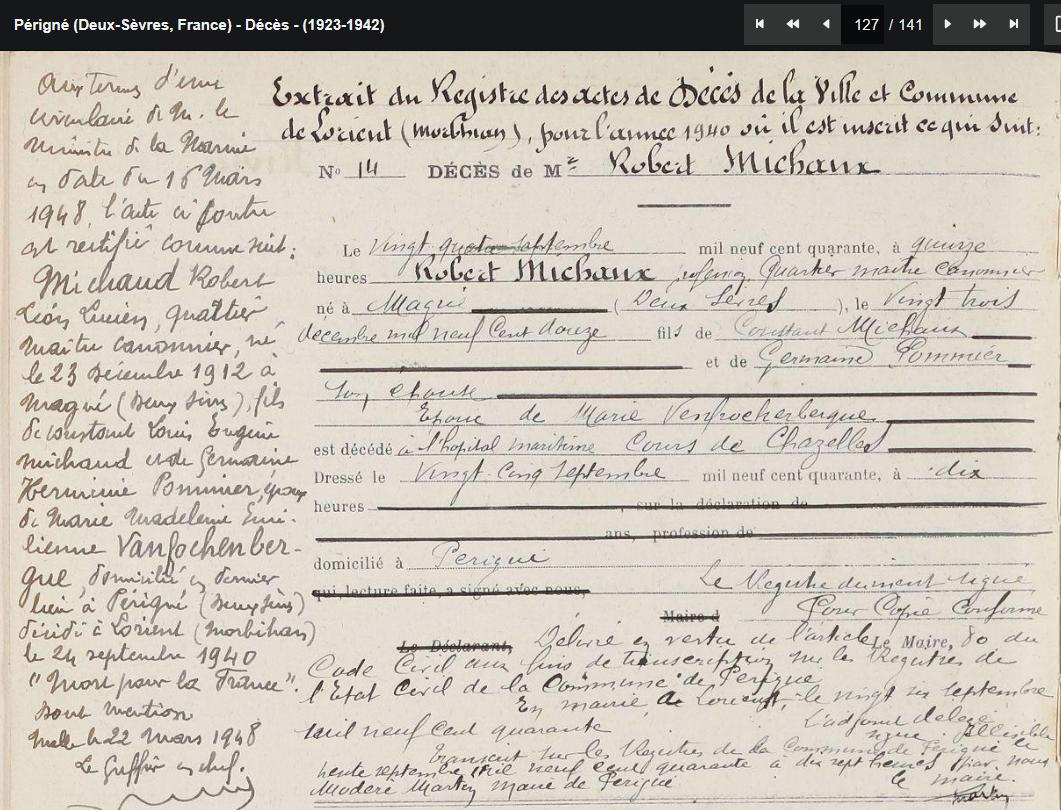 Périgné (Deux-Sèvres, France) - Décès - (1923-1942)
127 / 141
Aux termes d'une
circulaire de M. le
Ministre de la Marine
en date du 16 Mars
1948, l'acte ci contre
est rectifié comme suit :
Michaud Robert
Léon Lucien, quartier
maître canonnier, né
le 23 Décembre 1912 à
Magné (Deux Sèvres), fils
de Constant Louis Eugène
Michaud et de Germaine
Herminie Pommier, époux
de Marie Madeleine Emi-
lienne Vanfochenber-
gue, domicilié en dernier
lieu à Périgné (Deux Sèvres)
décédé à Lorient (Morbihan)
le 24 septembre 1940
"Mort pour la France".
dont mention
Melle le 22 Mars 1948
Le Greffier en chef.
Extrait du Registre des actes de Décès de la Ville et Commune
de Lorient (Morbihan), pour l'année 1940 où il est inscrit ce qui suit :
N° 14 DÉCÈS de Mr Robert Michaux
Le Vingt quatre septembre mil neuf cent quarante, à quinze
heures Robert Michaux, Quartier maître canonnier
né à Magné (Deux Sèvres), le Vingt trois
décembre mil neuf Cent douze fils de Constant Michaux
et de Germaine Pommier
son épouse
Epoux de Marie
est décédé à l'hopital maritime Cours de Chazelles
Dressé le Vingt-Cinq Septembre mil neuf cent quarante, à dix
heures , sur la déclaration de
ans, profession de
domicilié à Perigné
qui, lecture faite, a signé avec nous, Le Registre dument signé
Maire d Pour Copie Conforme
Le Déclarant, Le Maire,
Délivré en vertu de l'article 80 du
Code Civil aux fins de transcription sur les Registres de
l'Etat Civil de la Commune de Perigné
En mairie, de Lorient, le vingt six septembre
mil neuf cent quarante L'adjoint délégé
signé : Illisible
Transcrit sur les Registres de la Commune de Périgné le
trente septembre mil neuf cent quarante à dix sept heures par nous
Modère Martin maire de Perigné le maire.
Martin